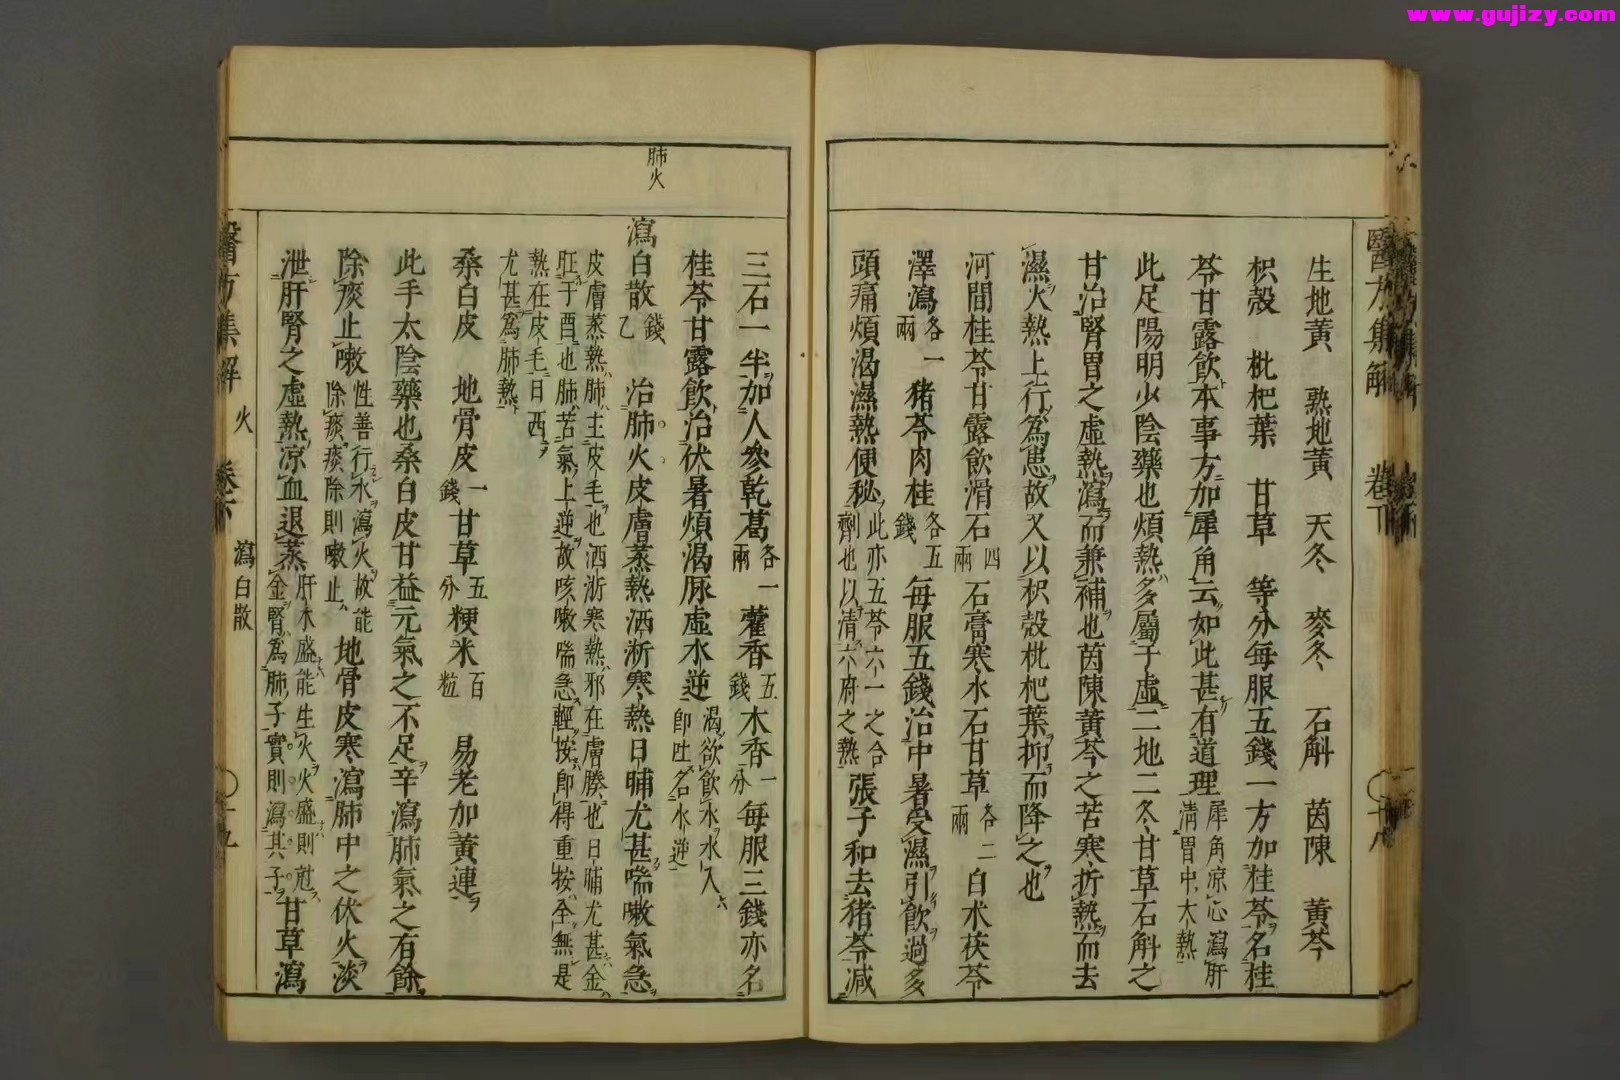 www.gujizy.com
醫方集解 卷下 十八
生地黃 熟地黃 天冬 麥冬 石斛 茵陳 黃芩
枳殼 枇杷葉 甘草 等分每服五錢一方加桂苓名桂
苓甘露飲本事方加犀角云如此甚有道理犀角凉心瀉肝清胃中大熱
此足陽明少陰藥也煩熱多屬于虛二地二冬甘草石斛之
甘治腎胃之虛熱瀉而兼補也茵陳黃芩之苦寒折熱而去
濕火熱上行為患故又以枳殼枇杷葉抑而降之也
河間桂苓甘露飲滑石四兩石膏寒水石甘草各二兩白朮茯苓
澤瀉各一兩豬苓肉桂各五錢每服五錢治中暑受濕引飲過多
頭痛煩渴濕熱便秘此亦五苓六一之合劑也以清六府之熱張子和去豬苓減
三石一半加人參乾葛各一兩藿香五錢木香一分每服三錢亦名
桂苓甘露飲治伏暑煩渴脉虛水逆渴欲飲水水入即吐名水逆
肺火
瀉白散錢乙 治肺火皮膚蒸熱洒淅寒熱日晡尤甚喘嗽氣急
皮膚蒸熱肺主皮毛也洒淅寒熱邪在膚腠也日晡尤甚金
旺于酉也肺苦氣上逆故咳嗽喘急輕按即得重按全無是
熱在皮毛日西
尤甚為肺熱
桑白皮 地骨皮一錢甘草五分粳米百粒 易老加黃連
此手太陰藥也桑白皮甘益元氣之不足辛瀉肺氣之有餘
除痰止嗽性善行水瀉火故能除痰痰除則嗽止地骨皮寒瀉肺中之伏火淡
泄肝腎之虛熱凉血退蒸肝木盛能生火火盛則尅金腎為肺子實則瀉其子甘草瀉
醫方集解 火 卷下 瀉白散 十九